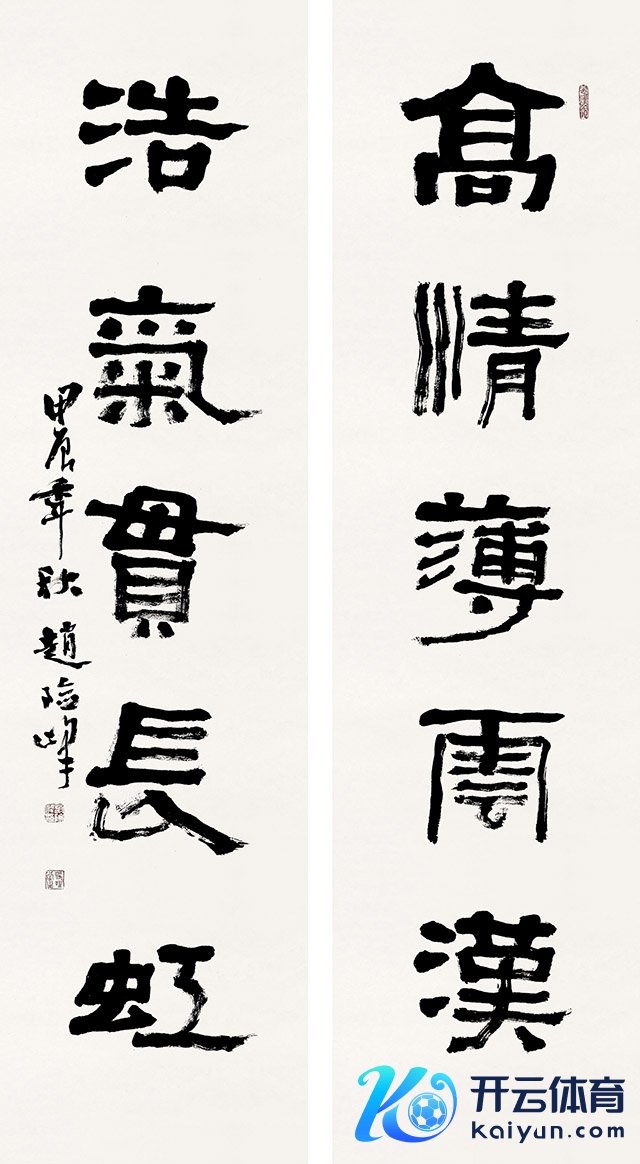 高情薄雲漢
浩氣貫長虹
甲辰年秋趙險峰
开云体育
kaiyun.com